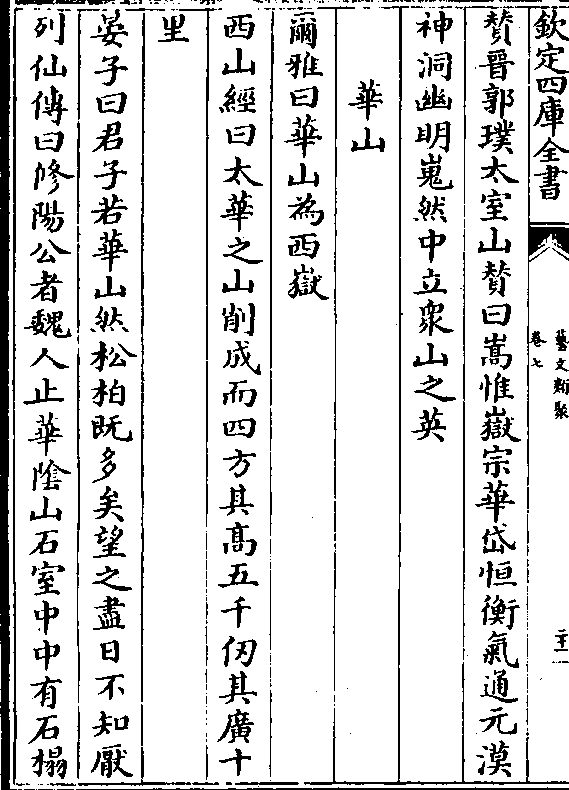 欽定四庫全書
藝文類聚
卷七
二十一
贊晉郭璞太室山贊曰嵩惟嶽宗華岱恒衡氣通元漠
神洞幽明嵬然中立衆山之英
華山
爾雅曰華山為西嶽
西山經曰太華之山削成而四方其高五千仞其廣十
里
晏子曰君子若華山然松柏既多矣望之盡日不知厭
列仙傳曰修陽公者魏人止華陰山石室中中有石榻